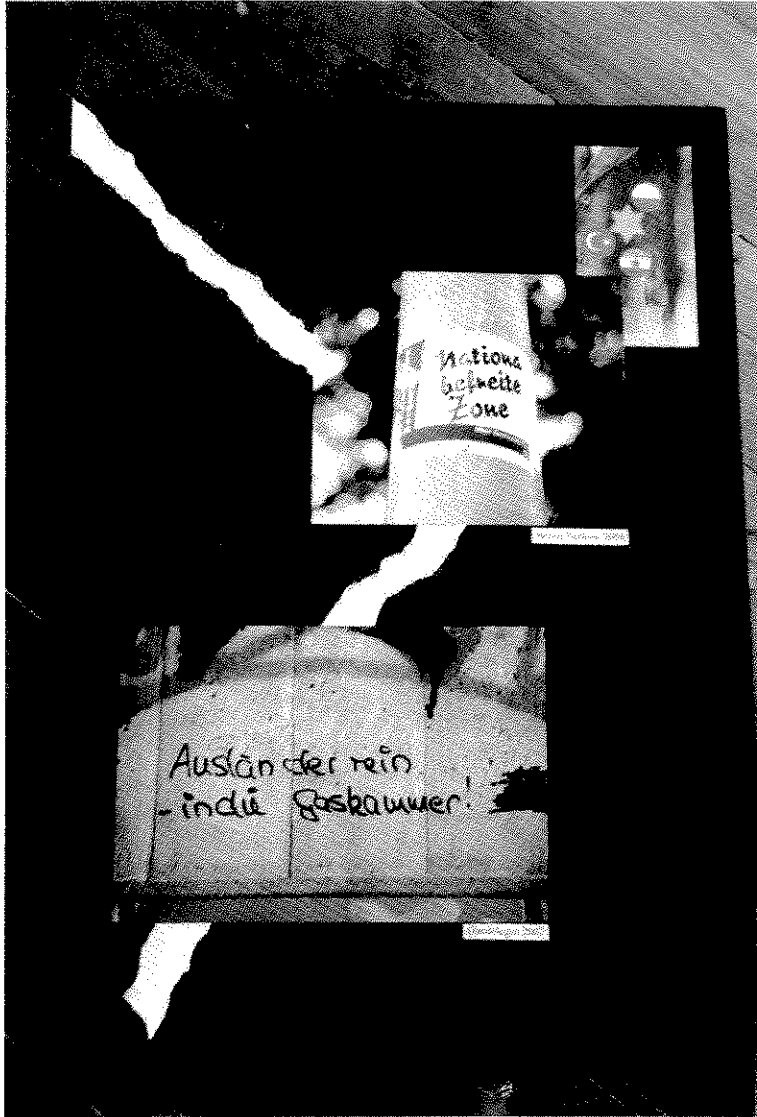 Nationa
befreite
Zone
Ausländer rein
- in die Gaskammer!